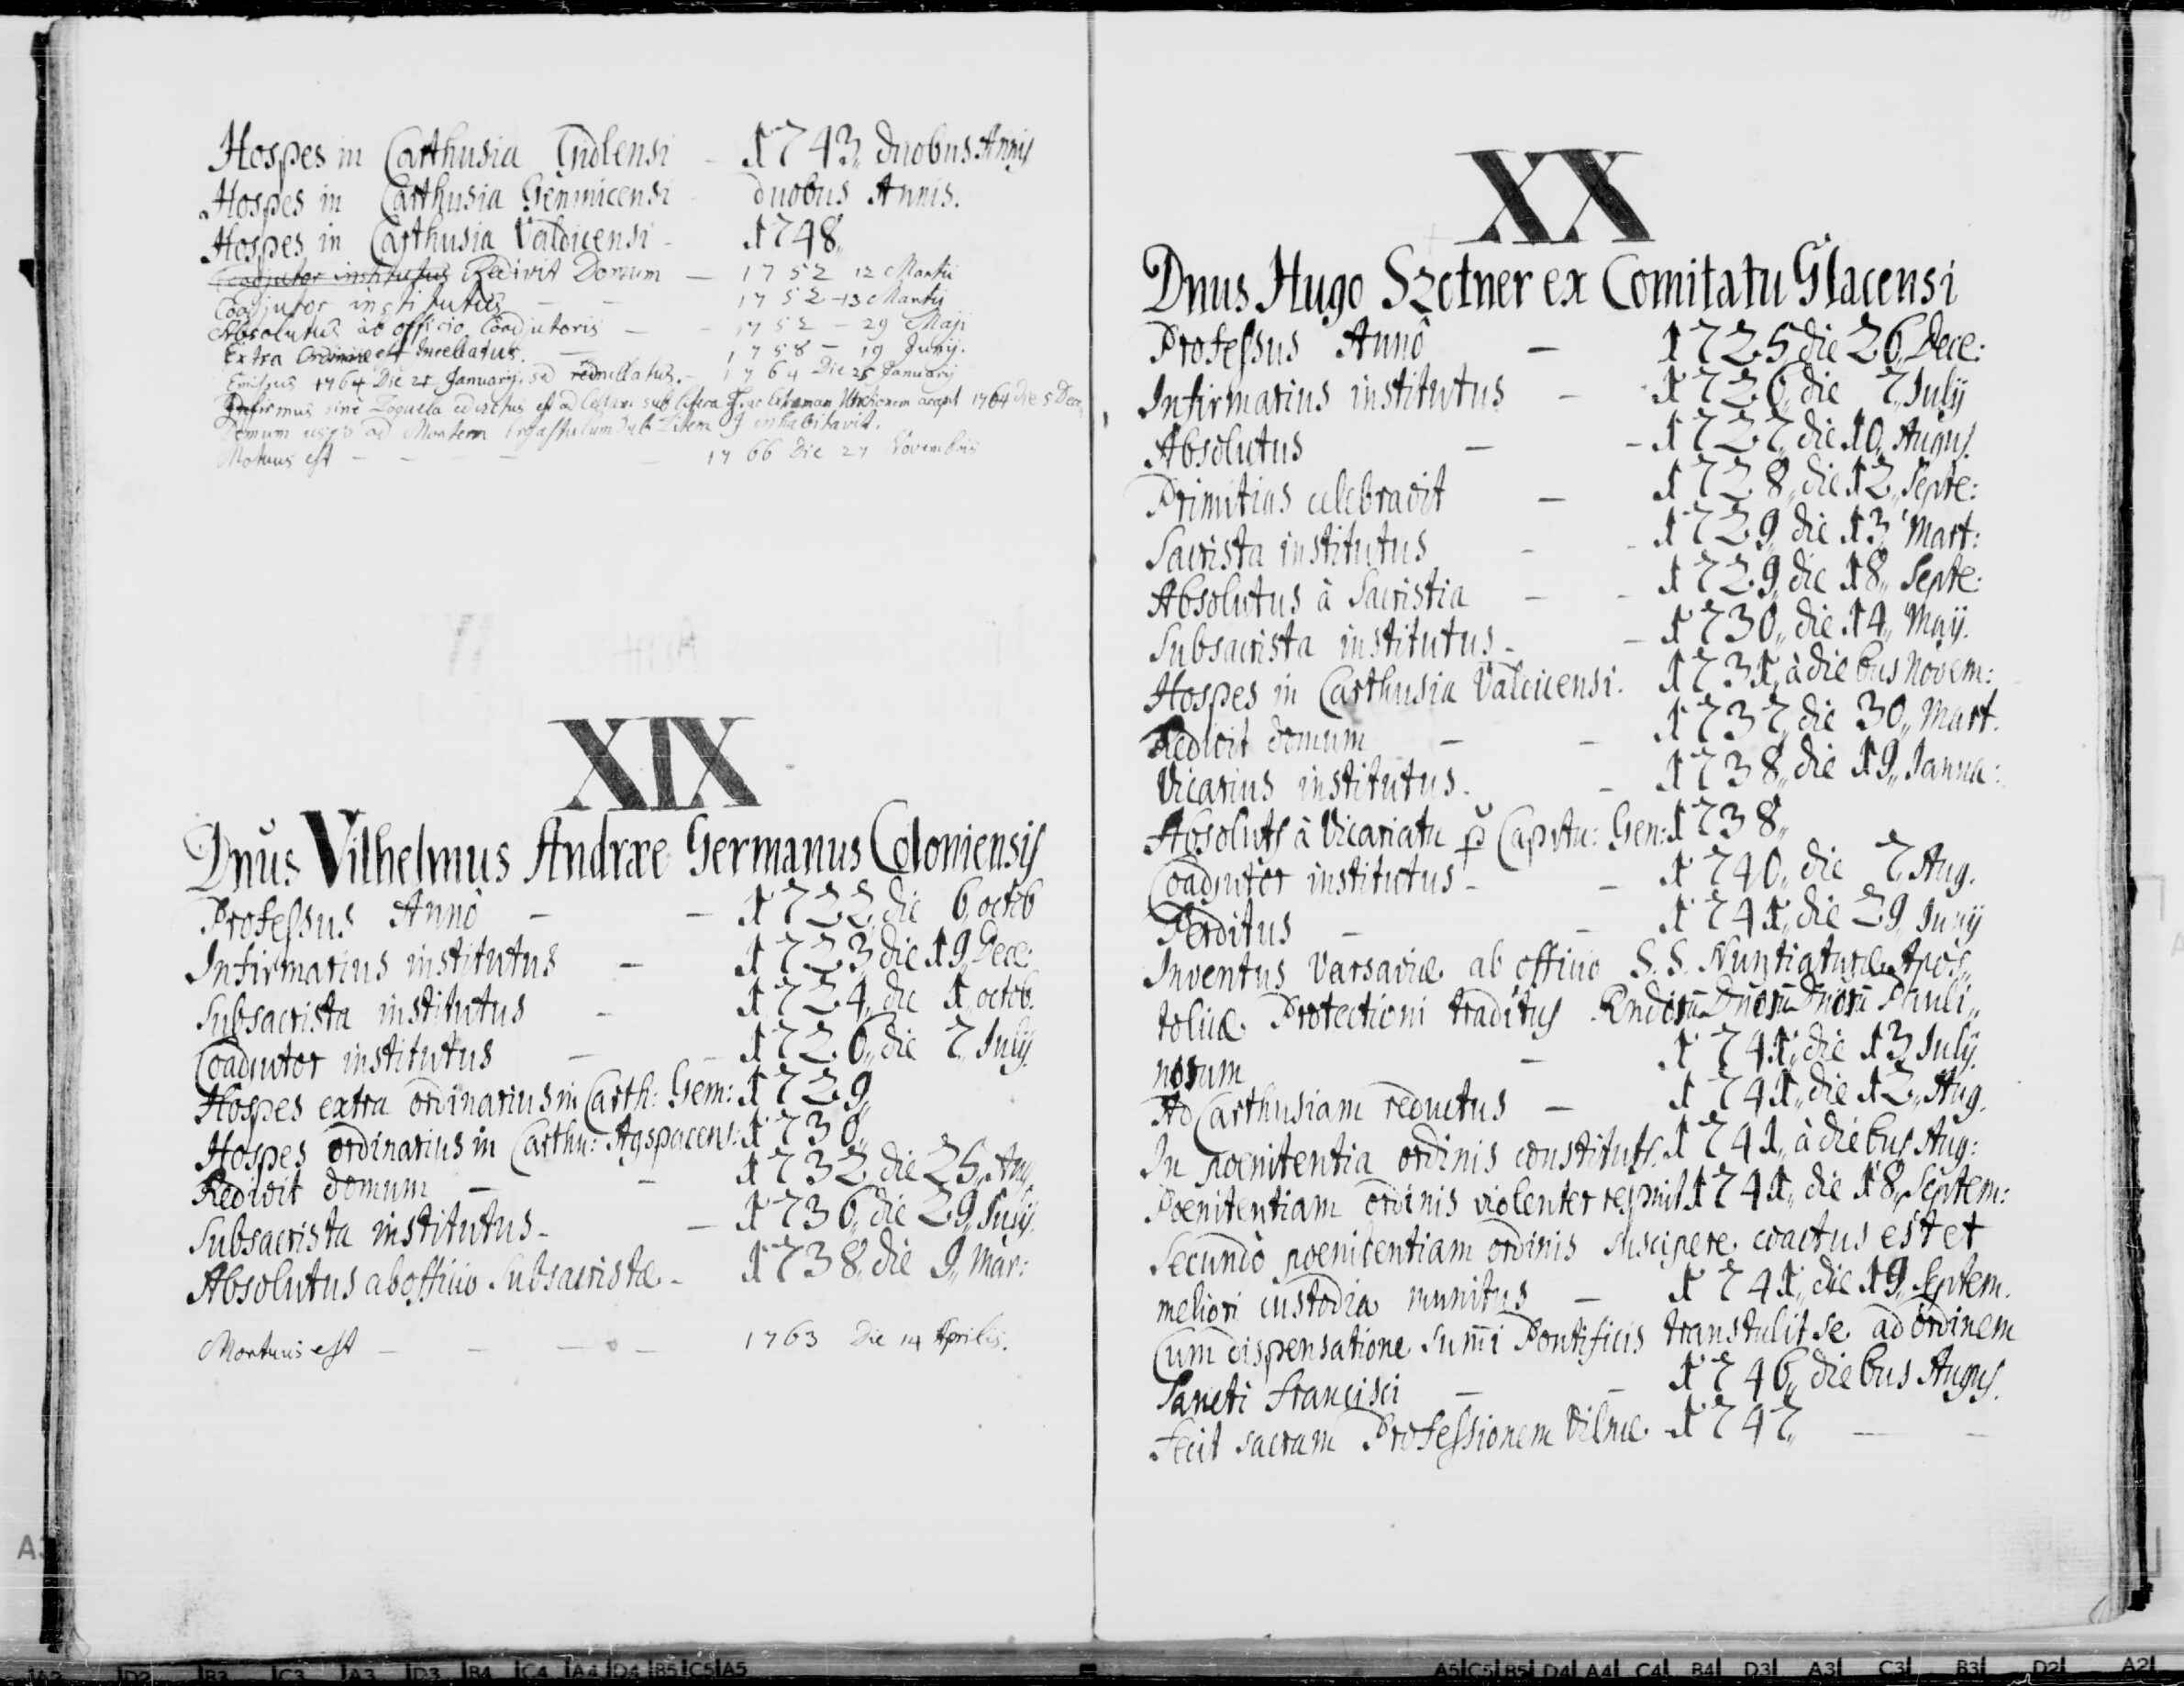 Hospes in Carthusia Tridlensi - 1743,, duobus Annis
Hospes in Carthusia Gemnicensi - duobus Annis.
Hospes in Carthusia Valdicensi - 1748,,
Coadjutor institutus Redivit Domum — 1752 12 Martii
Coadjutor institutus — — 1752 - 13 Martij
Absolutus ab officio Coadjutoris — - 1752 - 29 Maji
Extra Ordinem est Incellatus. — 1758 - 19 Junij.
Emissus 1764 Die 25 Januarij. sed reincellatus. - 1764 Die 25 Januarij
Infirmus sine Loquela eductus est ad Cellam sub litera J. ac Extremam Unctionem accepit 1764 die 5 Dec.
Domum usqs ad Mortem sub Litera J inhabitavit.
Mortuus est — — — — 1766 Die 27 Novembris
XIX
Dnus Vilhelmus Andræ Germanus Coloniensis
Professus Annô — — 1722,, die 6,, octob
Infirmarius institutus — 1723,, die 19,, Dece:
Subsacrista institutus - 1724,, die 1,, octob.
Coadiutor institutus — - 1726,, die 7,, Julij
Hospes extra ordinarius in Carth: Gem: 1729,,
Hospes ordinarius in Carthu: Agspacens: 1730,,
Redivit domum — - 1732,, die 25,, Aug
Subsacrista institutus - — 1736,, die 29,, Julij.
Absolutus ab officio Subsacristæ - 1738,, die 9,, Mar:
Mortuus est — — — — 1763 Die 14 Aprilis.
XX
Dnus Hugo Szetner ex Comitatu Glacensi
Professus Annô — 1725,, die 26,, Dece:
Infirmarius institutus — - 1726,, die 7,, Julij
Absolutus — - 1727,, die 10,, Augus.
Primitias celebravit — 1728,, die 12,, Septe:
Sacrista institutus - - 1729,, die 13,, Mart:
Absolutus à Sacristia — - 1729,, die 18,, Septe:
Subsacrista institutus - — 1730,, die 14,, Maÿ.
Hospes in Carthusia Valdicensi. 1731,, à diebus Novem:
Redivit domum — - 1737,, die 30,, Mart.
Vicarius institutus. - 1738,, die 19,, Janua:
Absoluts à Vicariatu p Capitu: Gen: 1738,,
Coadiutor institutus - - 1740,, die 7,, Aug.
Perditus — - 1741,, die 29,, Junij
Inventus Varsaviæ ab officio S. S. Nuntiaturæ Apos,,
tolicæ Protectioni traditus Rndorū Dnorū Dnorū Pauli,,
norum — 1741,, die 13,, Julij.
Ad Carthusiam reductus — 1741,, die 12,, Aug.
In poenitentia ordinis constituts. 1741,, à diebus Aug:
Poenitentiam ordinis violenter rupit 1741,, die 18,, Septem:
Secundò poenitentiam ordinis suscipere coactus est et
meliori custodia munitus — 1741,, die 19,, Septem.
Cum dispensatione Sum̄i Pontificis transtulit se ad ordinem
Sancti Francisci — - 1746,, diebus Augus.
Fecit sacram Professionem Vilnæ - 1747,, — —